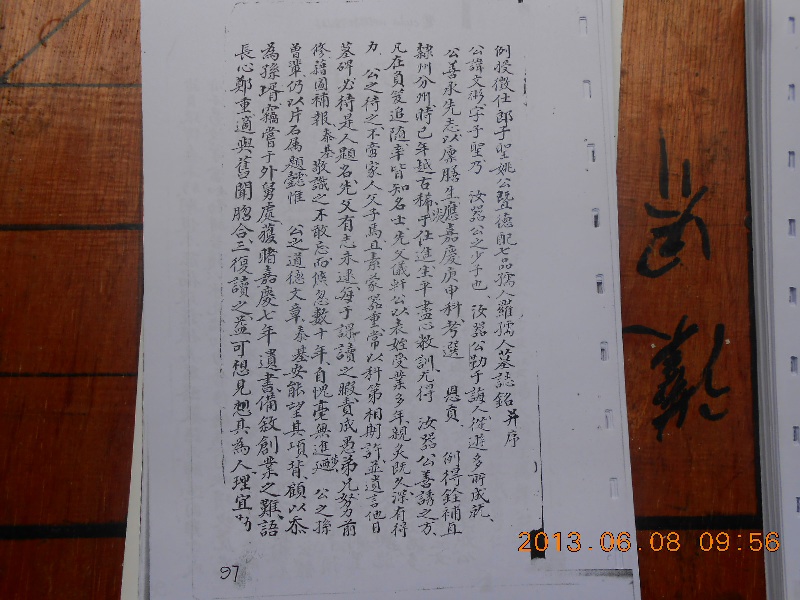 例授徵仕郎子聖姚公暨德配七品孺人羅孺人墓誌銘 并序
公諱文彬字子聖乃 汝器公之少子也、汝器公勤于誨人從遊多所成就、
公善承先志以廩膳生應嘉慶庚申科考選 恩貢 例得銓補直
隸州分州時已年越古稀淡于仕進生平盡心教訓尤得 汝器公善誘之方、
凡在負笈追随率皆知名士先父儀軒公以表姪受業多年親炙既久深有得
力 公之待之不啻家人父子焉且素蒙器重常以科第相期許並遺言他日
墓碑必待是人題名先父有志未逮每于課讀之暇責成愚弟兄努前
修藉圖補報泰基敬識之不敢忘而倏忽數十年自愧毫無進步 公之孫
曾鞏仍以片石属題懿惟 公之道德文章泰基安能望其項背顧以忝
為孫壻竊嘗于外舅處獲睹嘉慶七年遺書備敘創業之難語
長心鄭重適與舊聞脗合三復讀之益可想見其為人理宜
97
2013.06.08 09:56